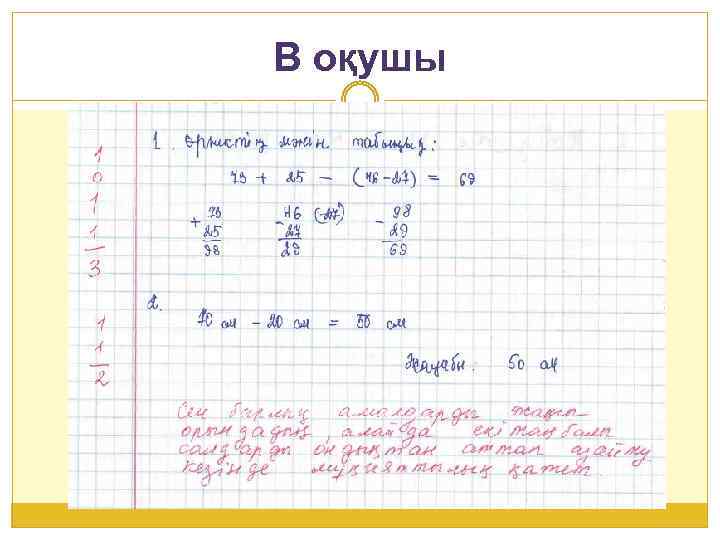 В оқушы
1
0
1
1
3
1. Өрнектің мәнін табыңыз:
73 + 25 - (46-27) = 69
+ 73
25
98
- 46
27
- 98
29
69
2.
1
1
2
70 см - 20 см = 50 см
Жауабы: 50 см
Сен барлық амалдарды жақсы
орындадың, алайда екі таңбалы
сандарды ондықтан аттап азайту
кезінде мұқияттылық қажет.